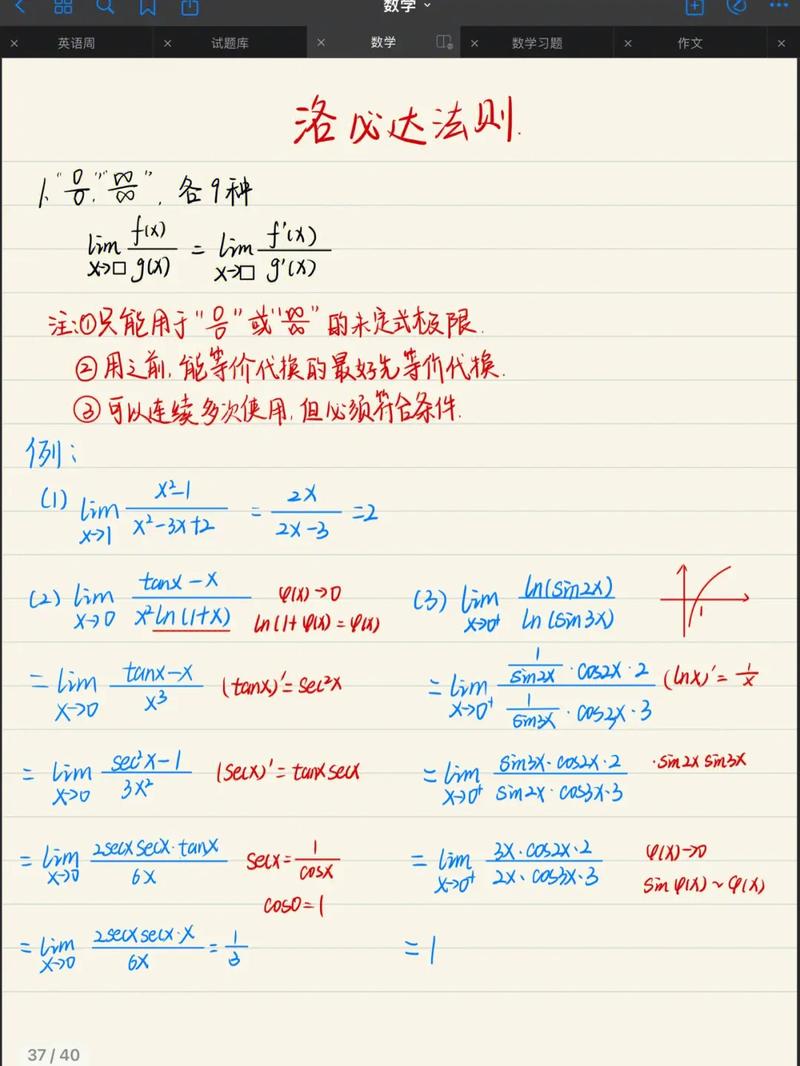 数学
英语周 试题库 数学 数学习题 作文
洛必达法则.
1. "0/0" "∞/∞", 各9种
lim x→□ f(x)/g(x) = lim x→□ f'(x)/g'(x)
注:①只能用于"0/0"或"∞/∞"的未定式极限.
②用之前,能等价代换的最好先等价代换.
③可以连续多次使用,但必须符合条件.
例:
(1) lim x→1 (x²-1)/(x²-3x+2) = 2x/(2x-3) = 2
(2) lim x→0 (tanx-x)/(x²ln(1+x)) φ(x)→0 ln(1+φ(x)=φ(x)
= lim x→0 (tanx-x)/x³ (tanx)'=sec²x
= lim x→0 (sec²x-1)/3x² (secx)'=tanxsecx
= lim x→0 (2secxsecx·tanx)/6x secx=1/cosx cos0=1
= lim x→0 (2secxsecx·x)/6x = 1/3
(3) lim x→0⁺ ln(sin2x)/ln(sin3x) 1
= lim x→0⁺ (1/sin2x ·cos2x·2)/(1/sin3x ·cos2x·3) (lnx)'=1/x
= lim x→0⁺ (sin3x·cos2x·2)/(sin2x·cos3x·3) ·sin2x sin3x
= lim x→0⁺ (3x·cos2x·2)/(2x·cos3x·3) φ(x)→0 sinφ(x)~φ(x)
= 1
37 / 40